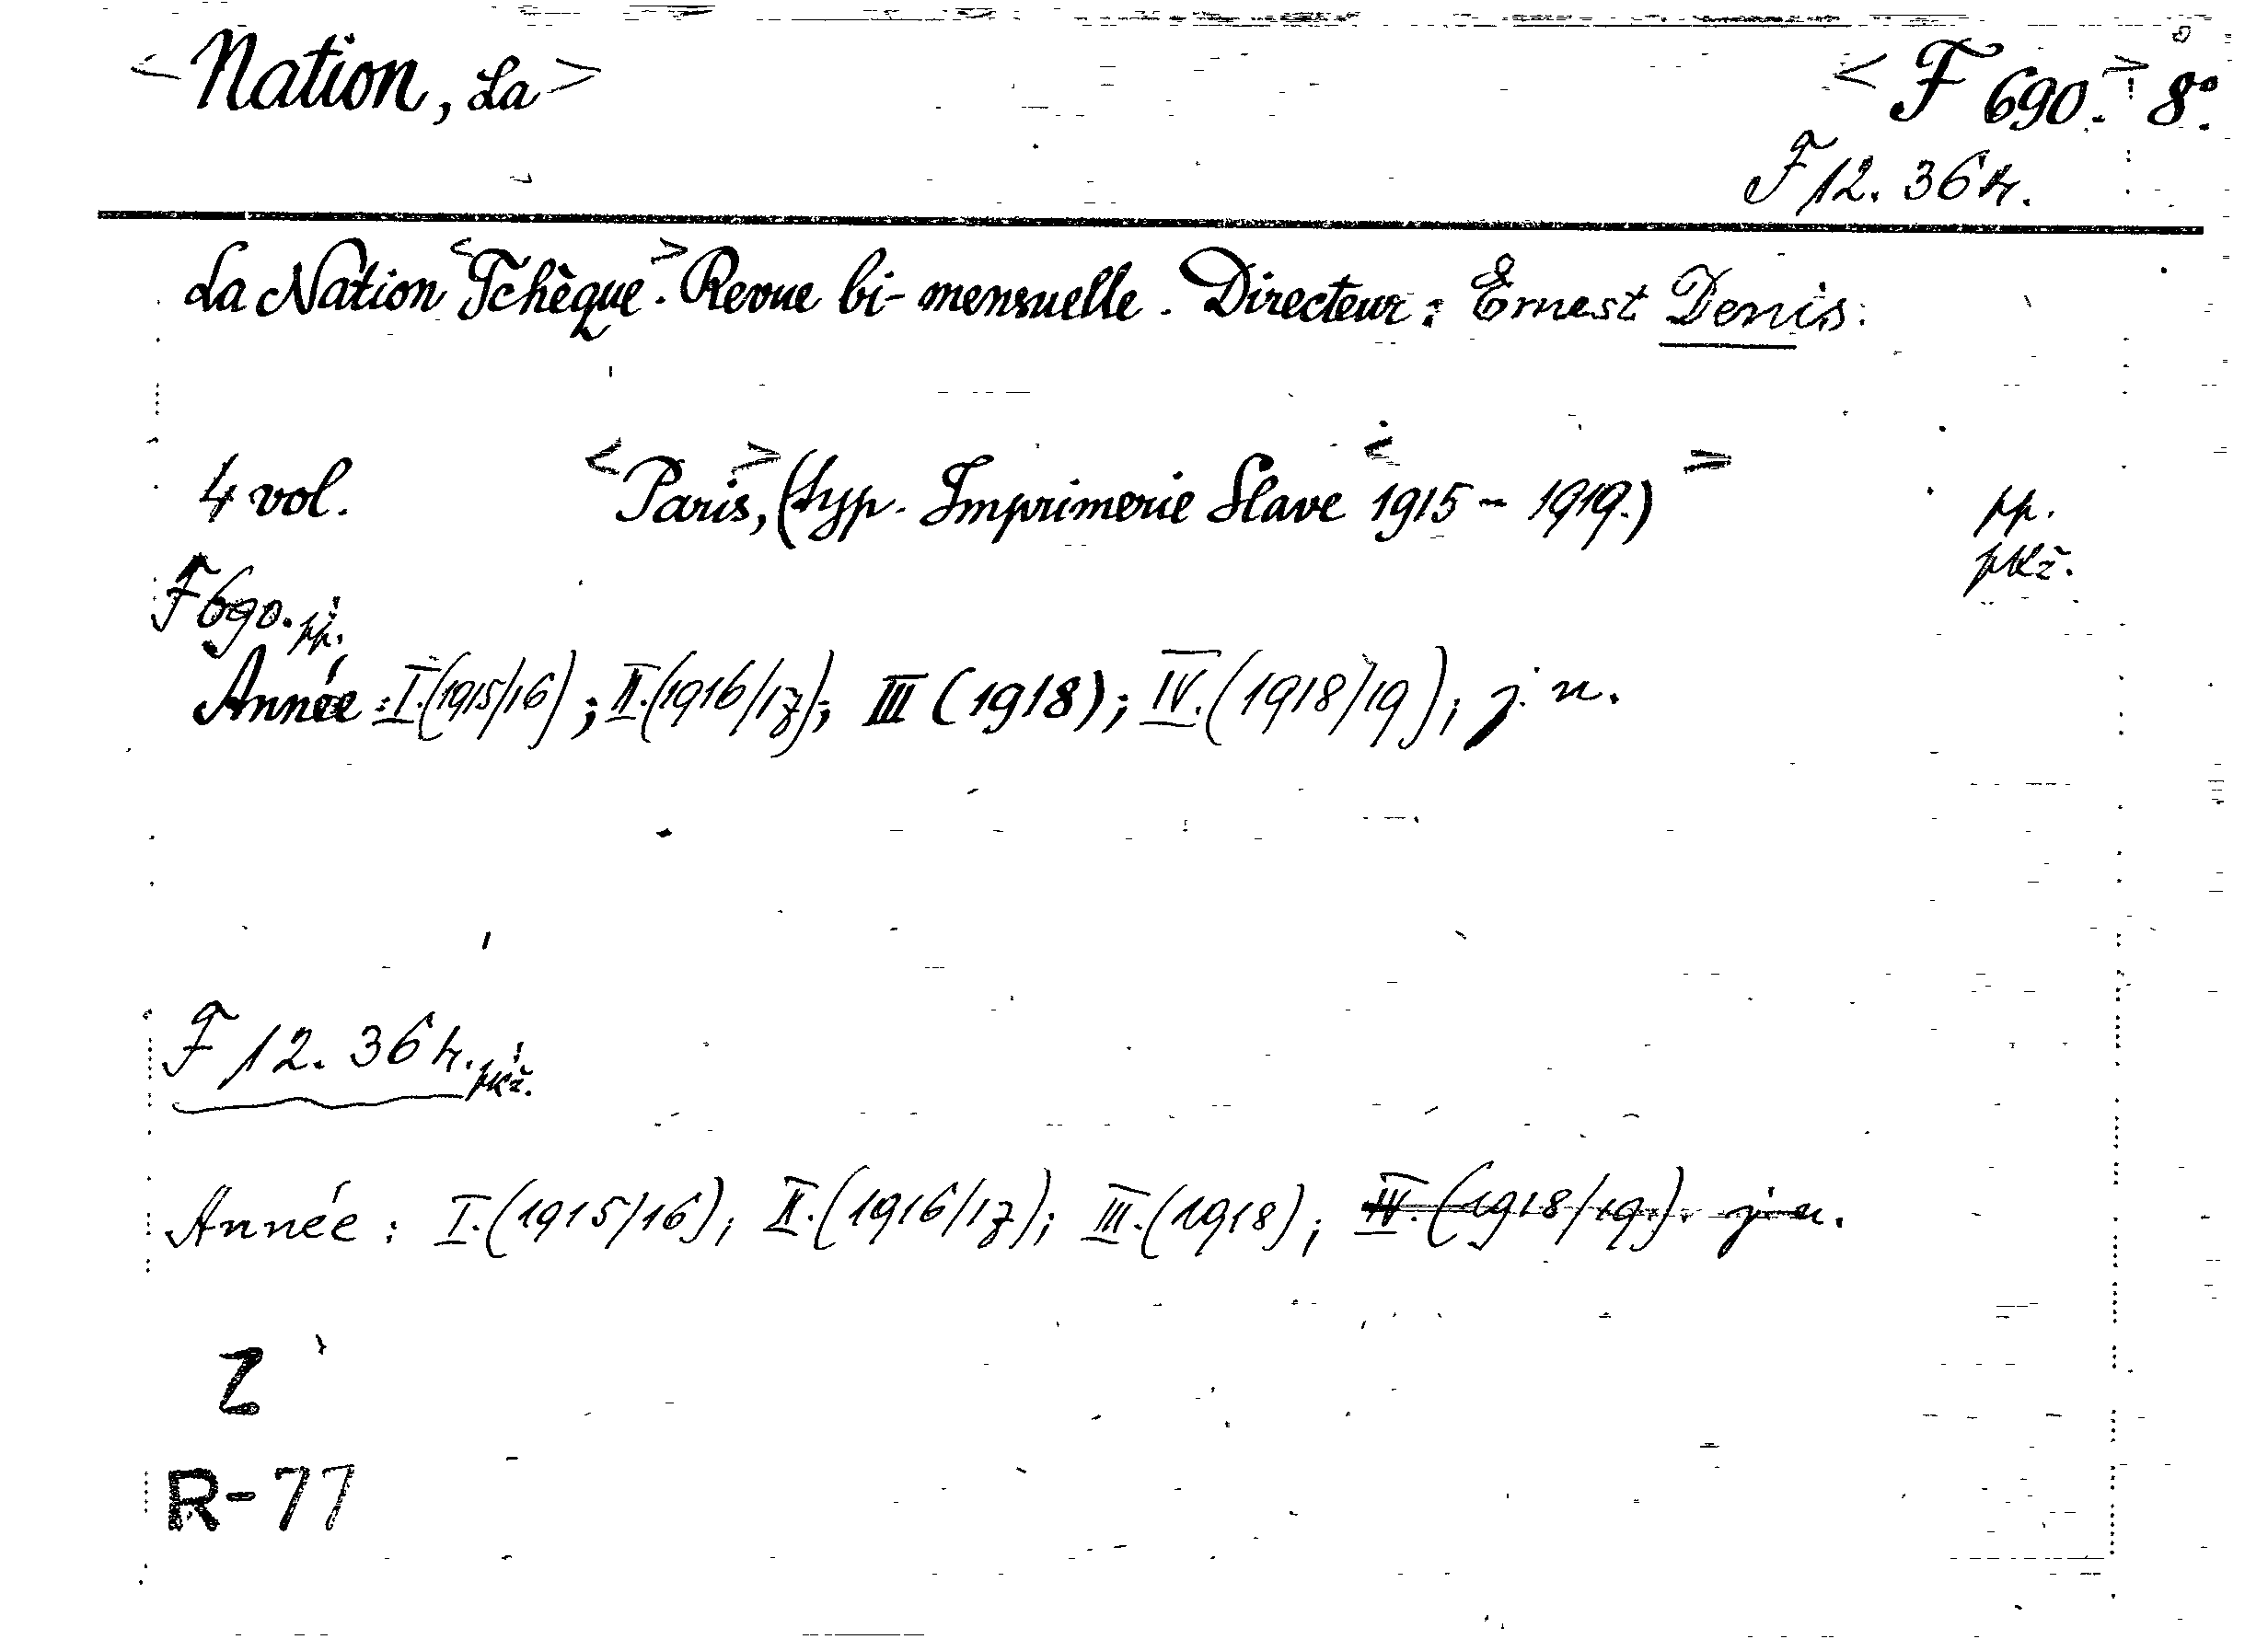 <Nation, La> <F 690.> 8°.
F 12. 364.
La Nation <Tchèque>. Revue bi-mensuelle. Directeur: Ernest Denis.
4 vol. <Paris,> (typ. Imprimerie Slave <1915-1919.)> pp.
pkž.
F 690. pp.
Année: I. (1915/16); II. (1916/17); III (1918); IV. (1918/19); j. n.
F 12. 364. pkž.
Année: I. (1915/16); II. (1916/17); III. (1918); IV. (1918/19). j. n.
Z
R-77